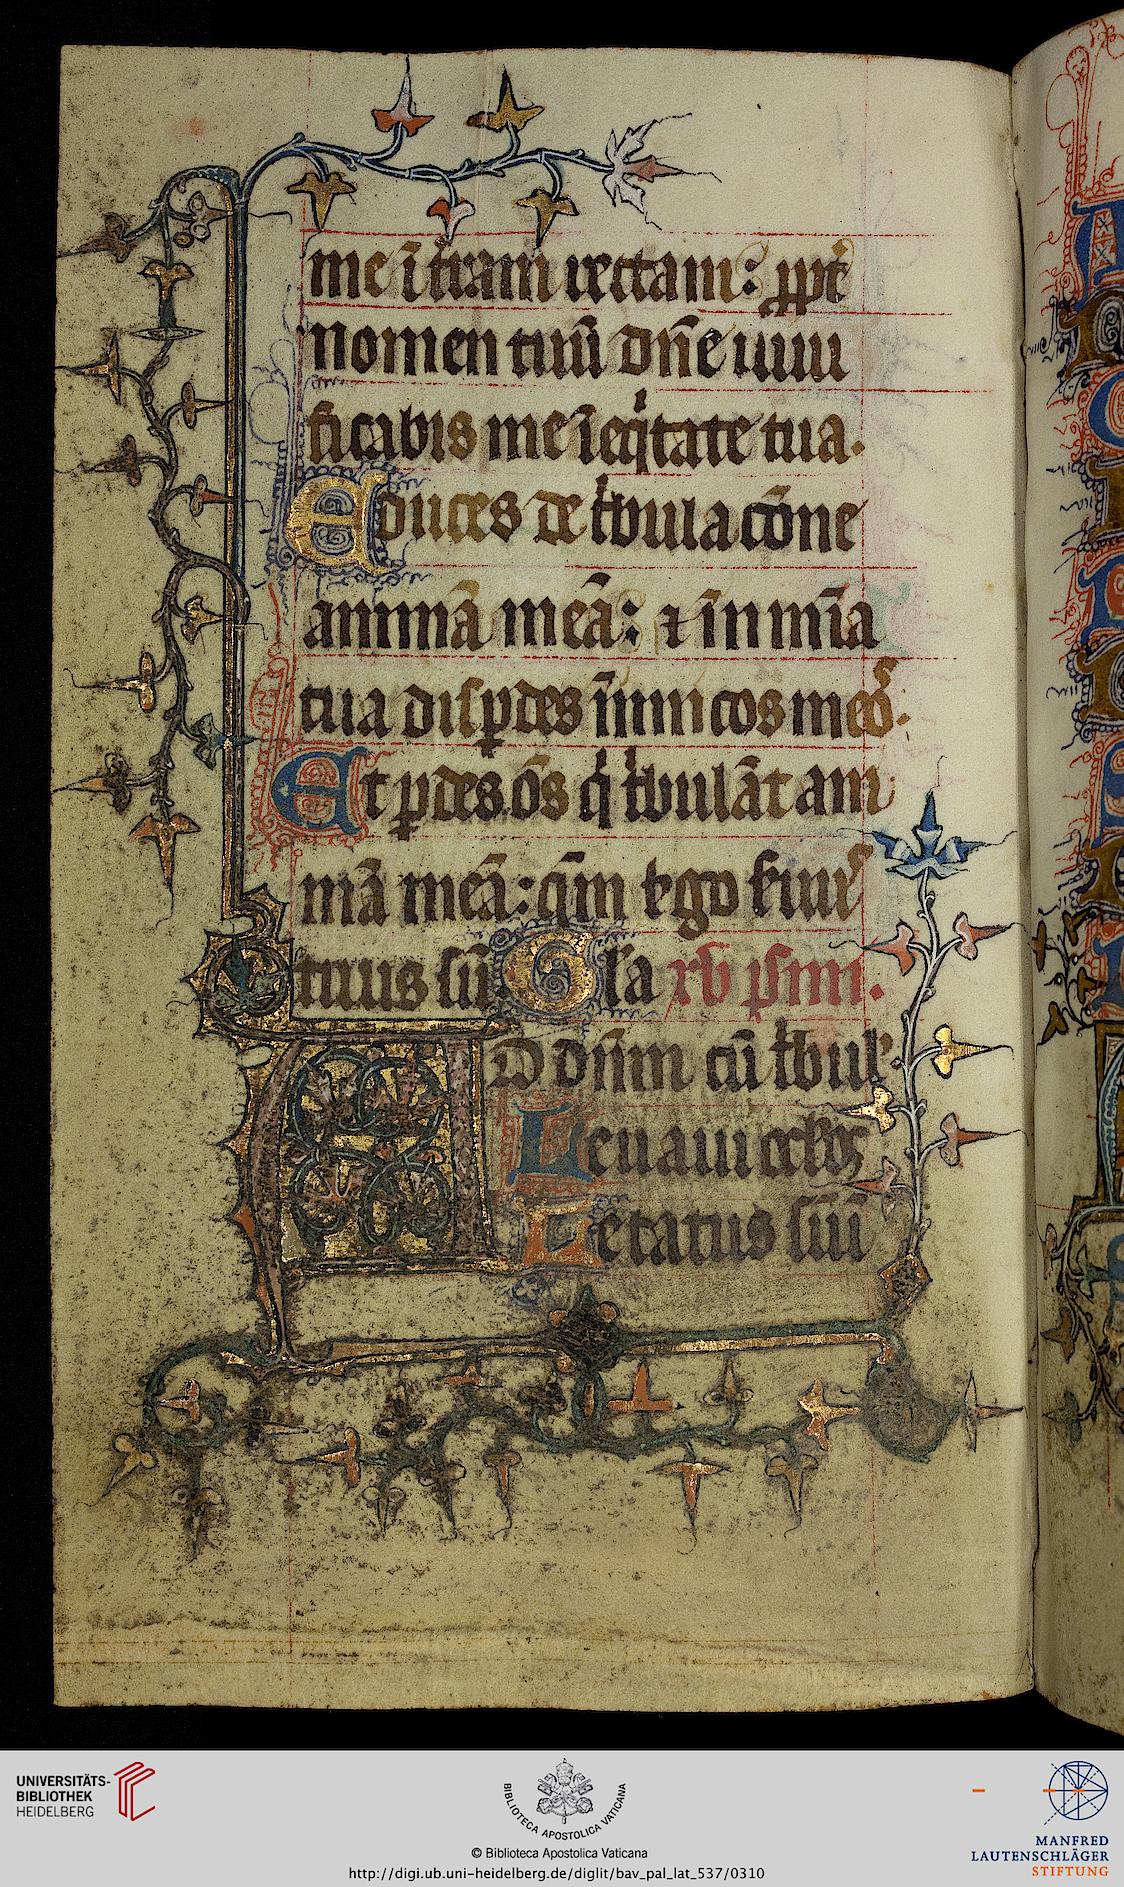 me ī t̄ram rectam: ꝓpt̄
nomen tuū dn̄e uiui
ficabis me ī eqͥtate tua.
Educes de tͥbulacōne
animā meā: ⁊ īn mīa
tua disꝑdes īnimicos meoꝰ.
Et ꝑdes om̄s qͥ tͥbulāt ani
mā meā: qm̄ ego
tuus sū Gl̄a xv psmi.
Ad dn̄m cū tͥbul
Leuaui oclos
Letatus sum
UNIVERSITÄTS-
BIBLIOTHEK
HEIDELBERG
BIBLIOTECA APOSTOLICA VATICANA
© Biblioteca Apostolica Vaticana
http://digi.ub.uni-heidelberg.de/diglit/bav_pal_lat_537/0310
MANFRED
LAUTENSCHLÄGER
STIFTUNG